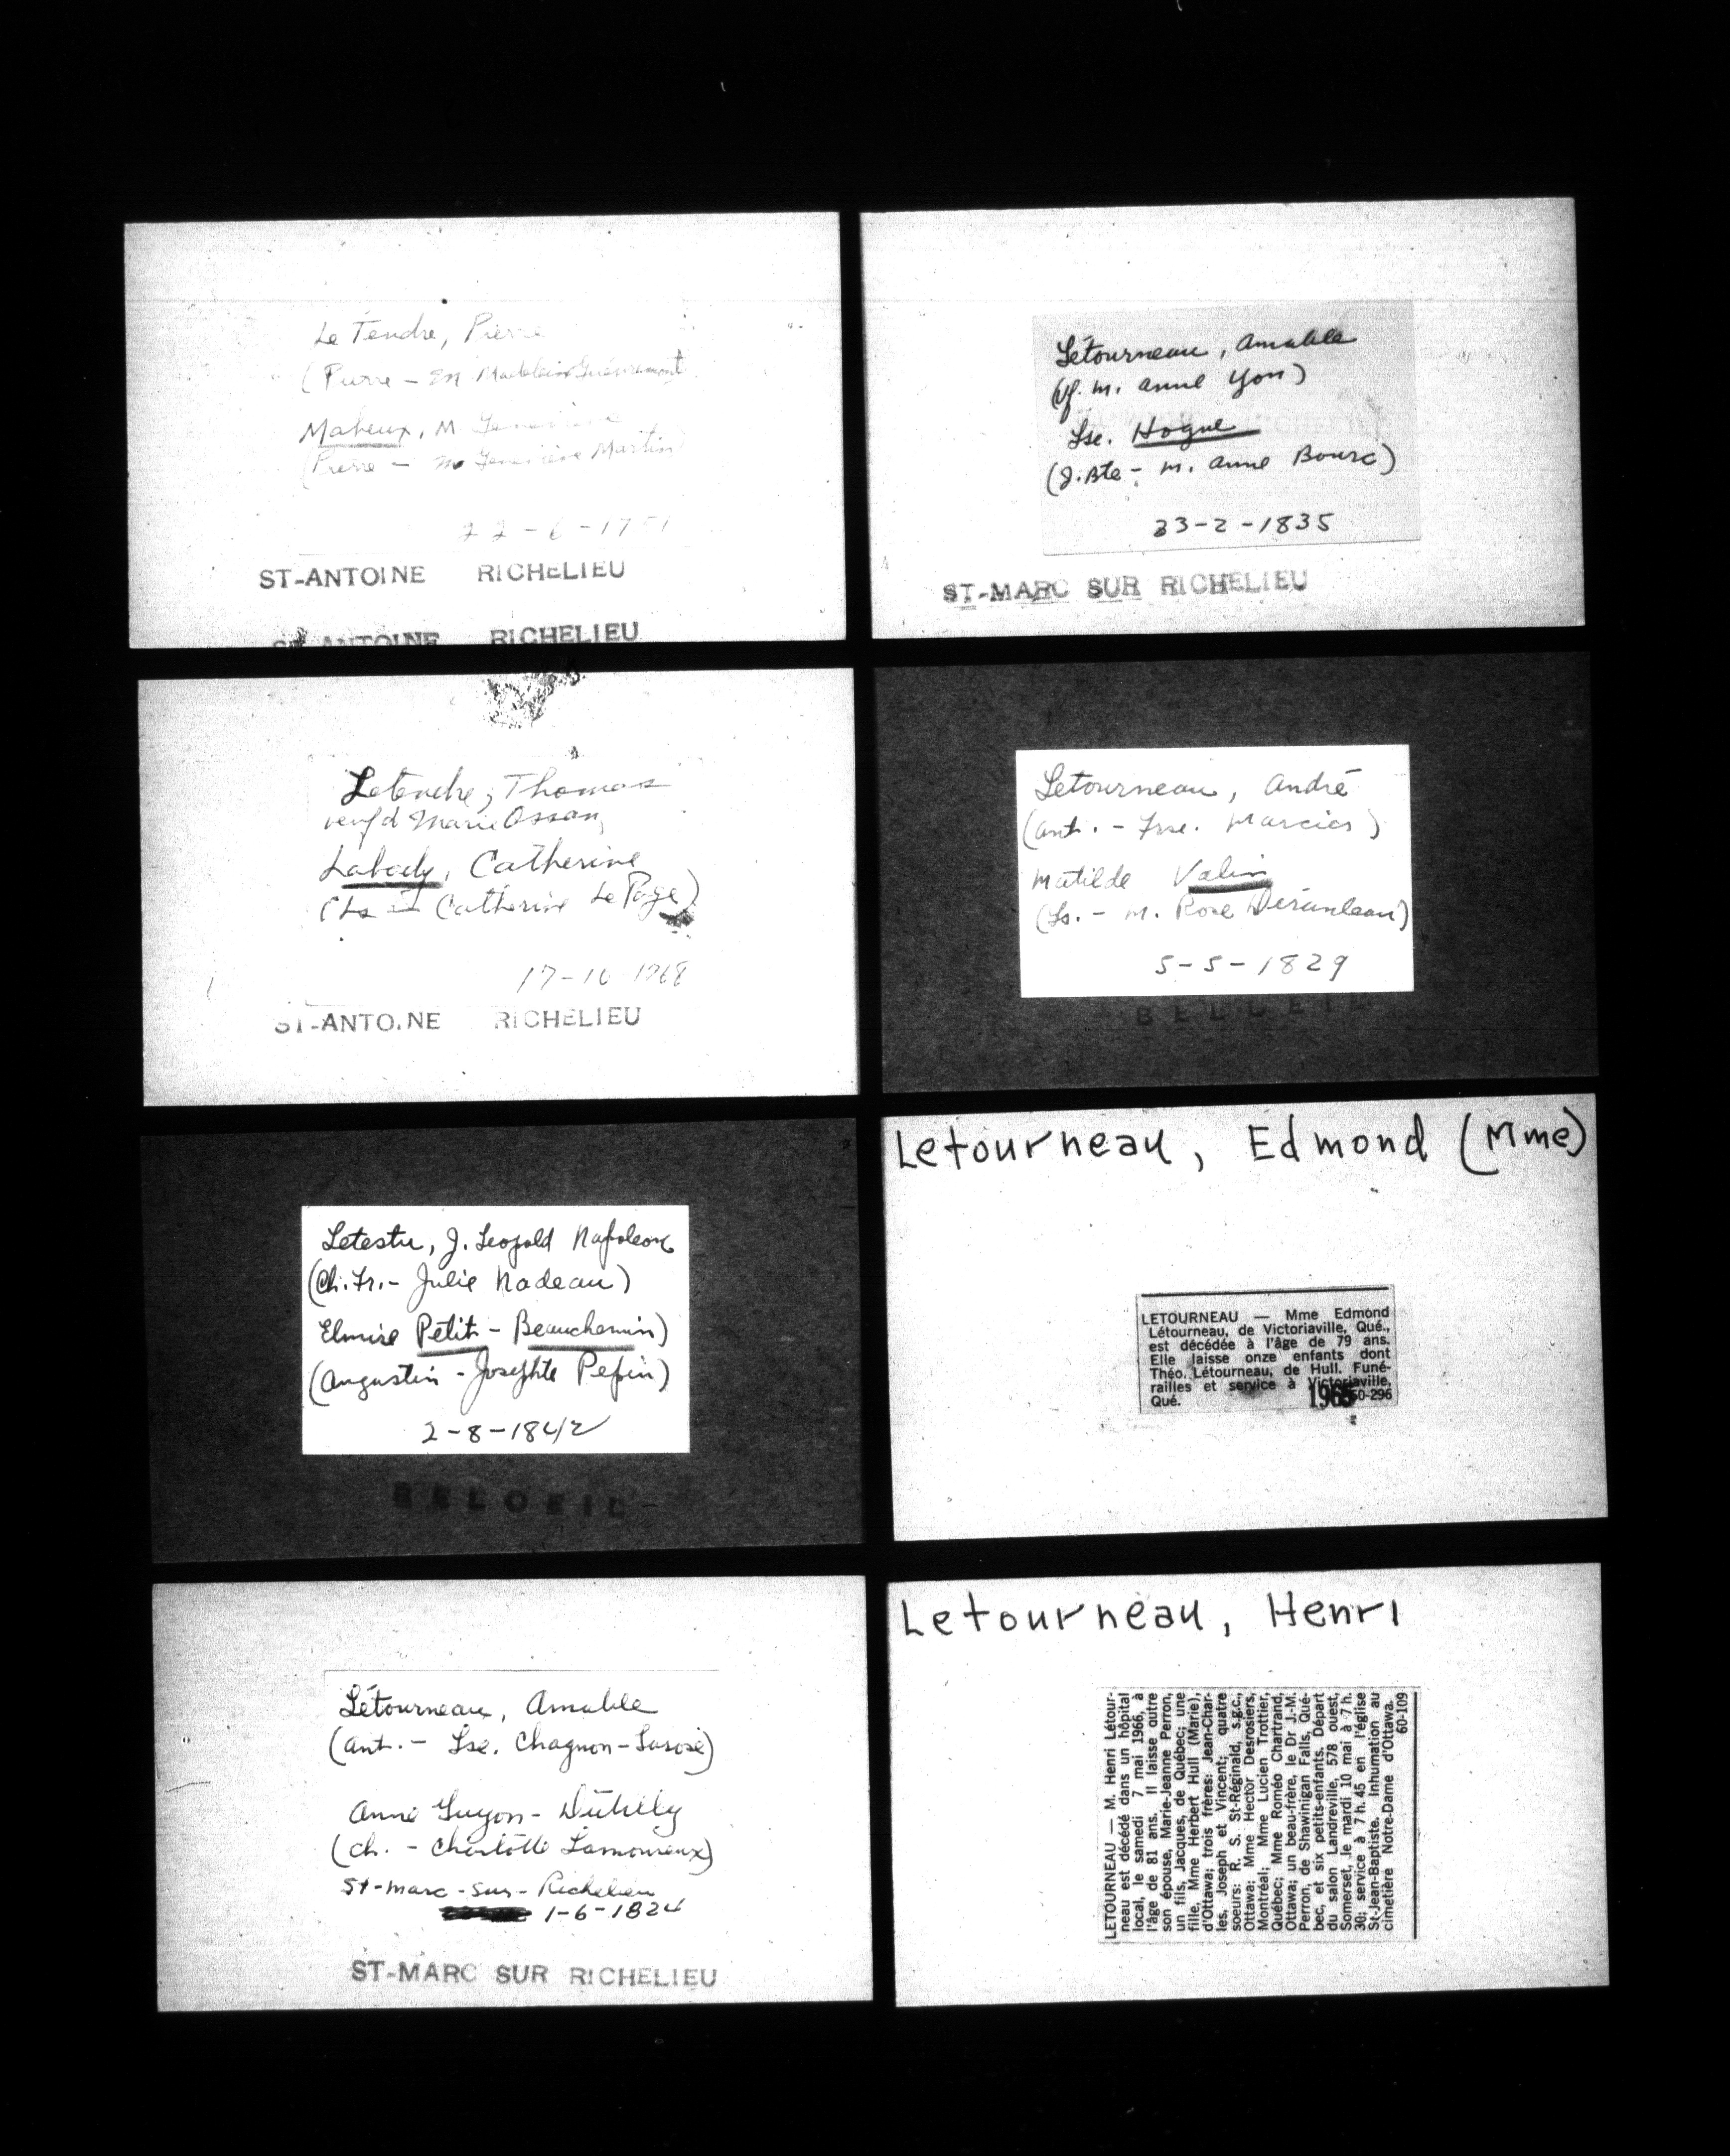 Le Tendre, Pierre
(Pierre - M Madeleine Guevremont)
Maheux, M Geneviève
(Pierre - M Geneviève Martin)
22-6-1751
ST-ANTOINE RICHELIEU
ST-ANTOINE RICHELIEU
Letendre, Thomas
veuf d Marie Ossan,
Labady, Catherine
(Ls - Catherine Le Page)
ST-ANTOINE RICHELIEU
Letestu, J. Leopold Napoleon
(Ch. Fr. - Julie Nadeau)
Elmire Petit - Beauchemin)
(Augustin - Josephte Pepin)
2-8-1842
BELOEIL
Létourneau, Amable
(Ant. - Lse. Chagnon-Larose)
Anne Guyon - Dutilly
(Ch. - Charlotte Lamoureux)
St-Marc-sur-Richelieu
1-6-1824
ST-MARC SUR RICHELIEU
Létourneau, Amable
(Vf. M. Anne Yon)
Lse. Hogue
(J.Bte - M. Anne Bourc)
23-2-1835
ST-MARC SUR RICHELIEU
Letourneau, André
(Ant. - Frse. Marcier)
Matilde Valin
(Ls. - M. Rose Dérunleau)
5-5-1829
BELOEIL
Letourneau, Edmond (Mme)
LETOURNEAU — Mme Edmond
Létourneau, de Victoriaville, Qué.,
est décédée à l'âge de 79 ans.
Elle laisse onze enfants dont
Théo. Létourneau, de Hull. Funé-
railles et service à Victoriaville,
Qué. 1965 60-296
Letourneau, Henri
LETOURNEAU — M. Henri Létour-
neau est décédé dans un hôpital
local, le samedi 7 mai 1966, à
l'âge de 81 ans. Il laisse outre
son épouse, Marie-Jeanne Perron,
un fils, Jacques, de Québec; une
fille, Mme Herbert Hull (Marie),
d'Ottawa; trois frères: Jean-Char-
les, Joseph et Vincent; quatre
soeurs: R. S. St-Réginald, s.g.c.,
Ottawa; Mme Hector Desrosiers,
Montréal; Mme Lucien Trottier,
Québec; Mme Roméo Chartrand,
Ottawa; un beau-frère, le Dr J.-M.
Perron, de Shawinigan Falls, Qué-
bec, et six petits-enfants. Départ
du salon Landreville, 578 ouest,
Somerset, le mardi 10 mai à 7 h.
30; service à 7 h. 45 en l'église
St-Jean-Baptiste. Inhumation au
cimetière Notre-Dame d'Ottawa.
60-109